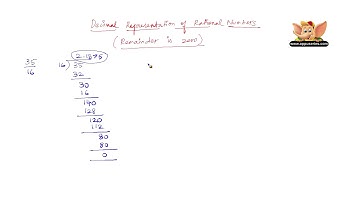 Decimal Representation of Rational Numbers
(Remainder is zero)
www.appuseries.com
2.1875
35
16
16) 35
32
30
16
140
128
120
112
80
80
0